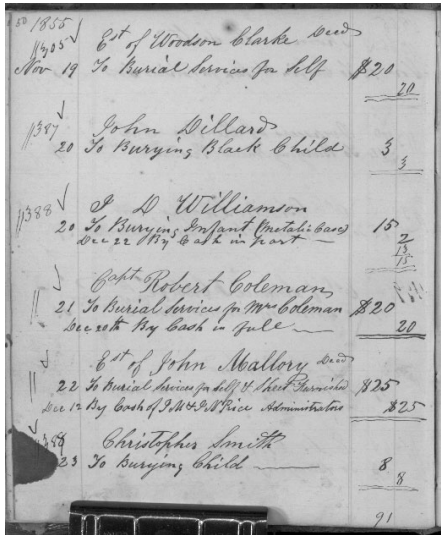 50 1855
11305 Est of Woodson Clarke Decd
Nov 19 To Burial Services for Self $20
20
11387 John Dillard
20 To Burying Black Child 3
3
11388 J D Williamson
20 To Burying Infant (Metalic Case) 15
Dec 22 By Cash in part — 2
13
15
Capt Robert Coleman
21 To Burial Services for Mrs Coleman $20
Dec 20th By Cash in full — 20
Est of John Mallory Decd
22 To Burial Services for Self & Sheet Furnished $25
Dec 12 By Cash of J M & J N Rice Administrators $25
388 Christopher Smith
23 To Burying Child — 8
8
91